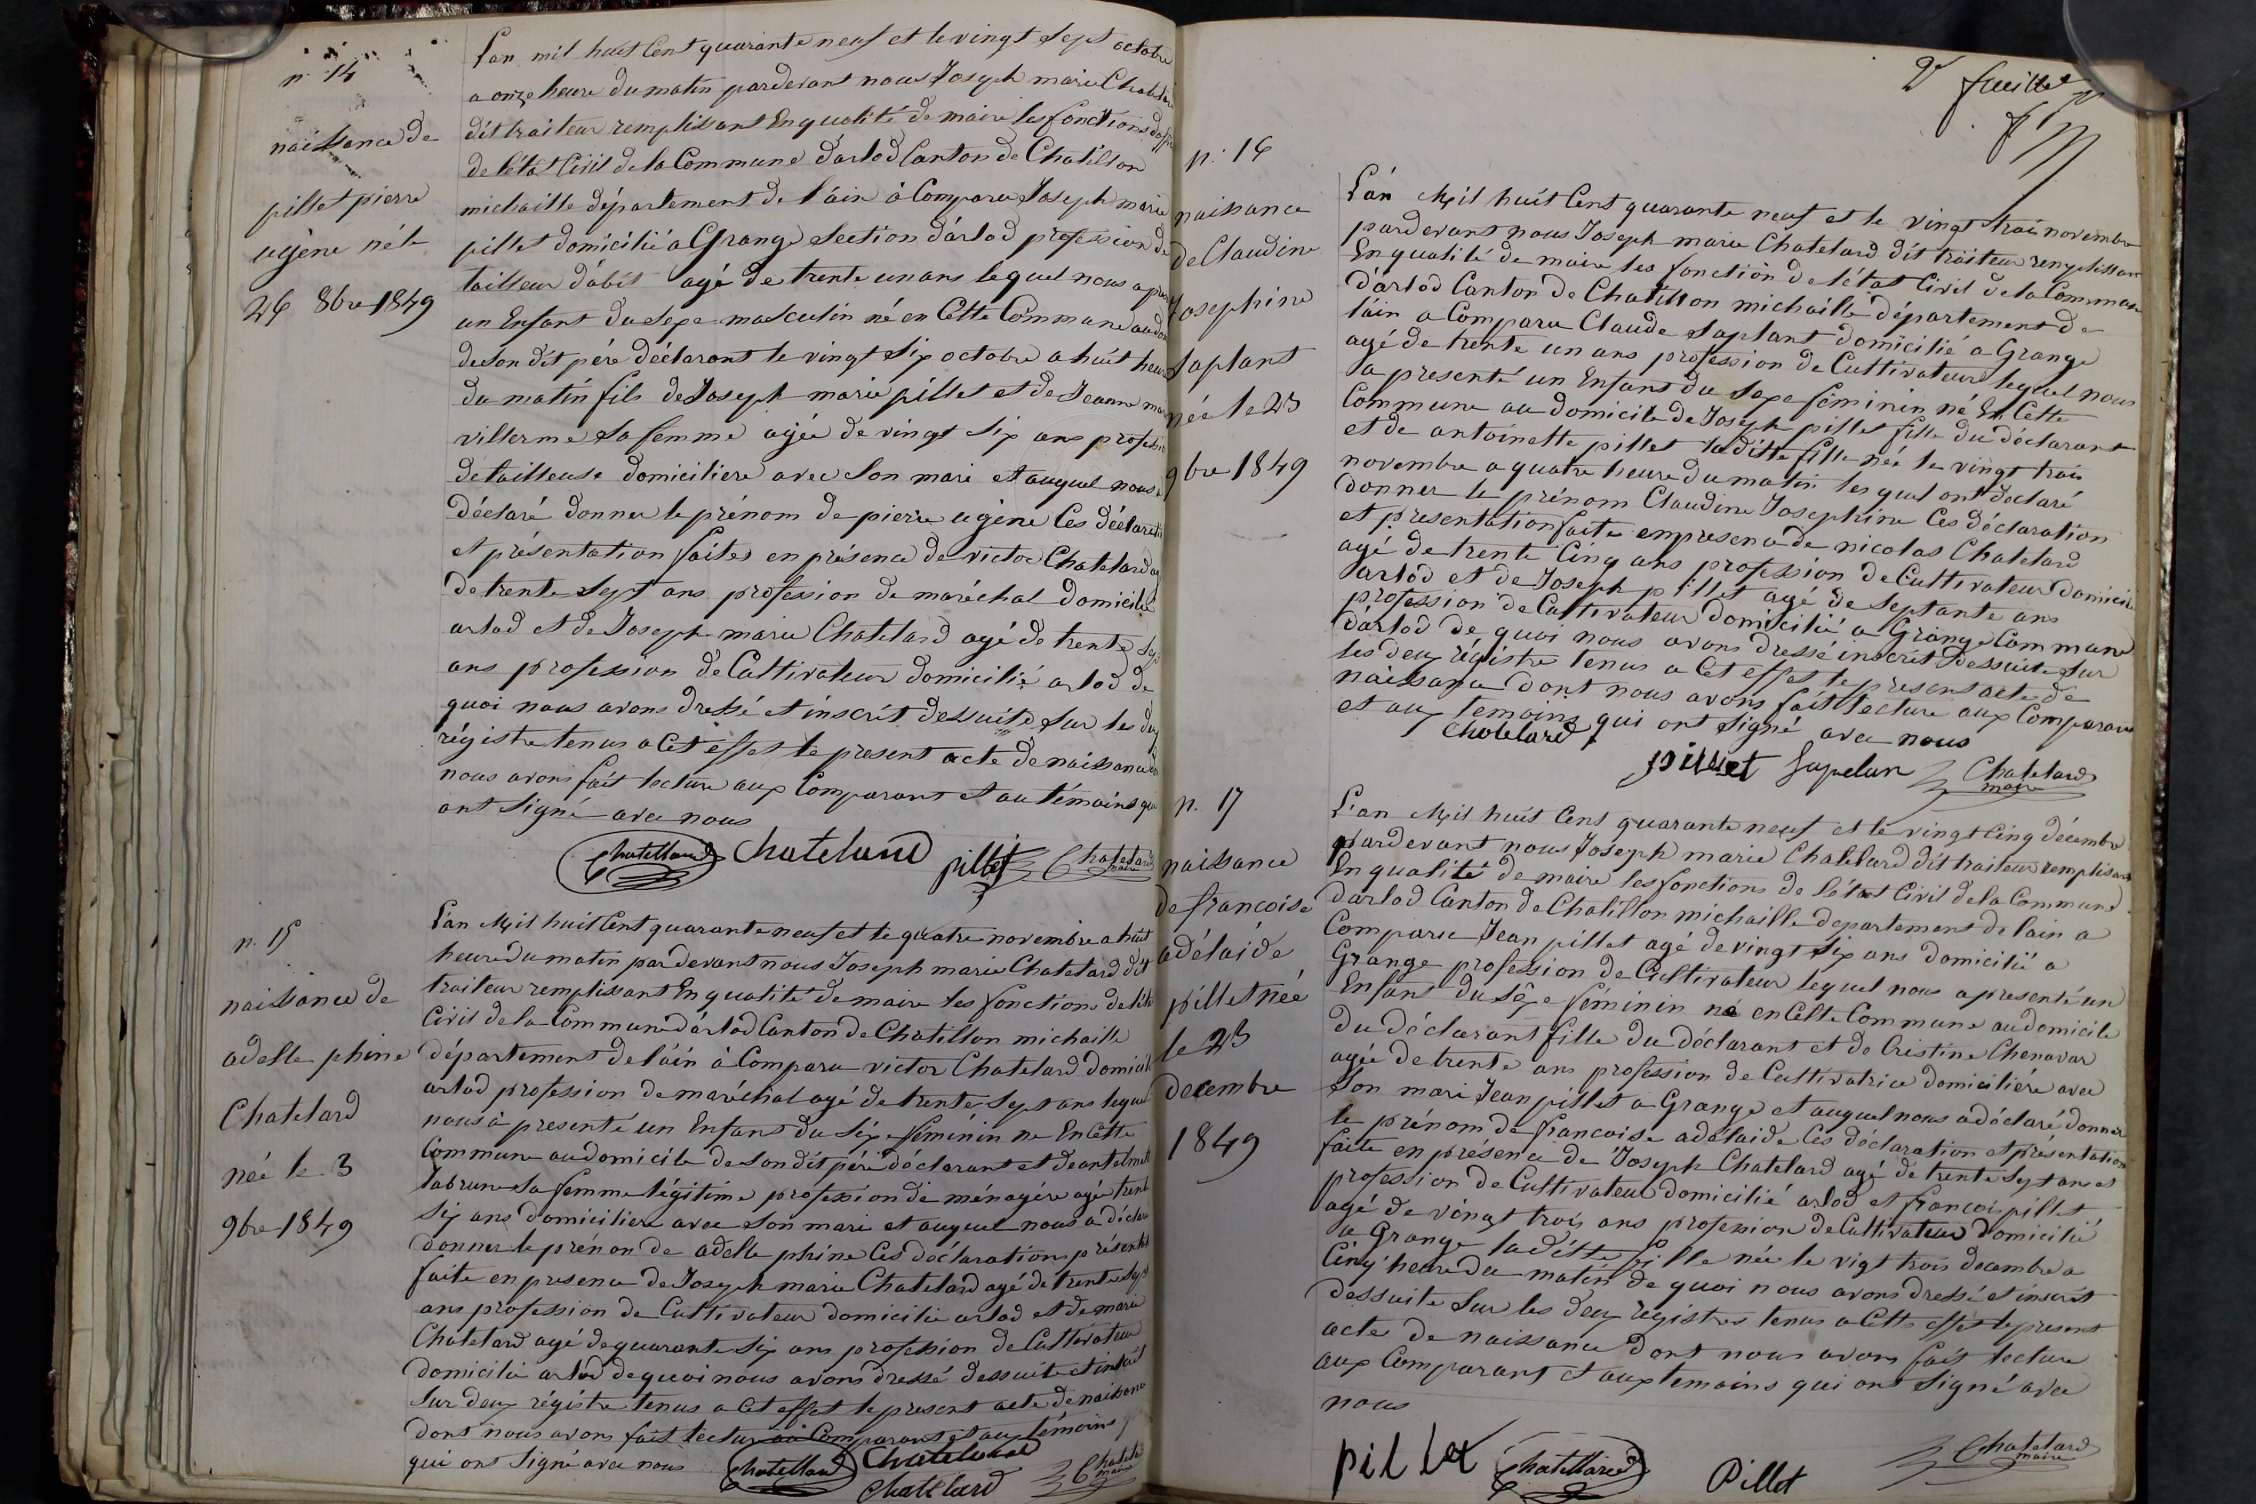 n. 14
naissance de
pillet pierre
ugène né le
26 8bre 1849
L'an mil huit Cent quarante neuf et le vingt sept octobre
a onze heure du matin pardevant nous Joseph marie Chatelard
dit traiteur remplissant En qualité de maire les fonctions
de l'état Civil de la Commune d'arlod Canton de Chatillon
michaille département de l'ain à Comparu Joseph marie
pillet domicilié a Grange section d'arlod profession de
tailleur d'abit agé de trente un ans lequel nous a
un Enfant du sexe masculin né en Cette Commune
de son dit père déclarant le vingt six octobre a huit heure
du matin fils de Joseph marie pillet et de Jeanne
villerme sa femme agée de vingt six ans profession
de tailleuse domiciliere avec son mari et auquel nous a
déclaré donner le prénom de pierre ugène Ces déclaration
et présentation faites en présence de victor Chatelard
de trente sept ans profession de maréchal domicilié
arlod et de Joseph marie Chatelard agé de trente sept
ans profession de Cultivateur domicilié arlod de
quoi nous avons dressé et inscrit dessuite sur les deux
régistre tenus a Cet effet le present acte de naissance
nous avons fait lecture aux Comparant et au témoins qui
ont signé avec nous
Chatellard Chatelard pillet Chatelard
maire
n. 15
naissance de
adelle phine
Chatelard
née le 3
9bre 1849
L'an Mil huit Cent quarante neuf et le quatre novembre a huit
heure du matin pardevant nous Joseph marie Chatelard dit
traiteur remplissant En qualité de maire les fonctions de l'état
Civil de la Commune d'arlod Canton de Chatillon michaille
département de l'ain à Comparu victor Chatelard domicilié
arlod profession de maréchal agé de trente sept ans lequel
nous à presenté un Enfant du sexe féminin né En Cette
Commune au domicile de son dit père déclarant et de
labrune sa femme légitime profession de ménagère agée trente
six ans domiciliere avec son mari et auquel nous a déclaré
donner le prénon de adelle phine Ces déclaration présentation
faite en presence de Joseph marie Chatelard agé de trente sept
ans profession de Cultivateur domicilié arlod et de marie
Chatelard agé de quarante six ans profession de Cultivateur
domicilié arlod de quoi nous avons dressé dessuite et inscrit
sur deux régistre tenus a Cet effet le present acte de naissance
dont nous avons fait lecture au Comparant et aux témoins
qui ont signé avec nous
Chatellard Chatelard
Chatelard Chatelard
maire
2e feuillet
n. 16
naissance
de Claudine
Josephine
saplant
née le 23
9bre 1849
L'an Mil huit Cent quarante neuf et le vingt trois novembre
pardevant nous Joseph marie Chatelard dit traiteur remplissant
En qualité de maire les fonction de l'état Civil de la Commune
d'arlod Canton de Chatillon michaille département de
l'ain a Comparu Claude saplant domicilié a Grange
agé de trente un ans profession de Cultivateur lequel nous
a presenté un Enfant du sexe féminin né En Cette
Commune au domicile de Joseph pillet fille du déclarant
et de antoinette pillet la ditte fille née le vingt trois
novembre a quatre heure du matin les quel ont déclaré
donner le prénom Claudine Josephine Ces déclaration
et présentation faite en presence de nicolas Chatelard
agé de trente Cinq ans profession de Cultivateur domicilié
arlod et de Joseph pillet agé de septante ans
profession de Cultivateur domicilié a Grange Commune
d'arlod de quoi nous avons dressé inscrit dessuite sur
les deux régistre tenus a Cet effet le present acte de
naissance dont nous avons fait lecture aux Comparant
et aux temoins qui ont signé avec nous
Chatelard
pillet Chatelard
maire
n. 17
naissance
de francoise
adélaide
pillet née
le 23
decembre
1849
L'an Mil huit Cent quarante neuf et le vingt Cinq décembre
pardevant nous Joseph marie Chatelard dit traiteur remplissant
En qualité de maire les fonctions de l'état Civil de la Commune
d'arlod Canton de Chatillon michaille departement de lain a
Comparu Jean pillet agé de vingt six ans domicilié a
Grange profession de Cultivateur lequel nous a presenté un
Enfant du sexe féminin né en Cette Commune au domicile
du déclarant fille du déclarant et de Cristine Chenavar
agée de trente ans profession de Cultivatrice domiciliére avec
son mari Jean pillet a Grange et auquel nous a déclaré donner
le prénom de francoise adelaide Ces déclaration et présentation
faite en présence de Joseph Chatelard agé de trente sept ans et
profession de Cultivateur domicilié arlod et francois pillet
agé de vingt trois ans profession de Cultivateur domicilié
a Grange la ditte fille née le vigt trois decembre a
Cinq heure du matin de quoi nous avons dressé et inscrit
dessuite sur les deux régistres tenus a Cette effet le present
acte de naissance dont nous avons fait lecture
aux Comparant et aux temoins qui ont signé avec
nous
pillet Chatellard Pillet Chatelard
maire